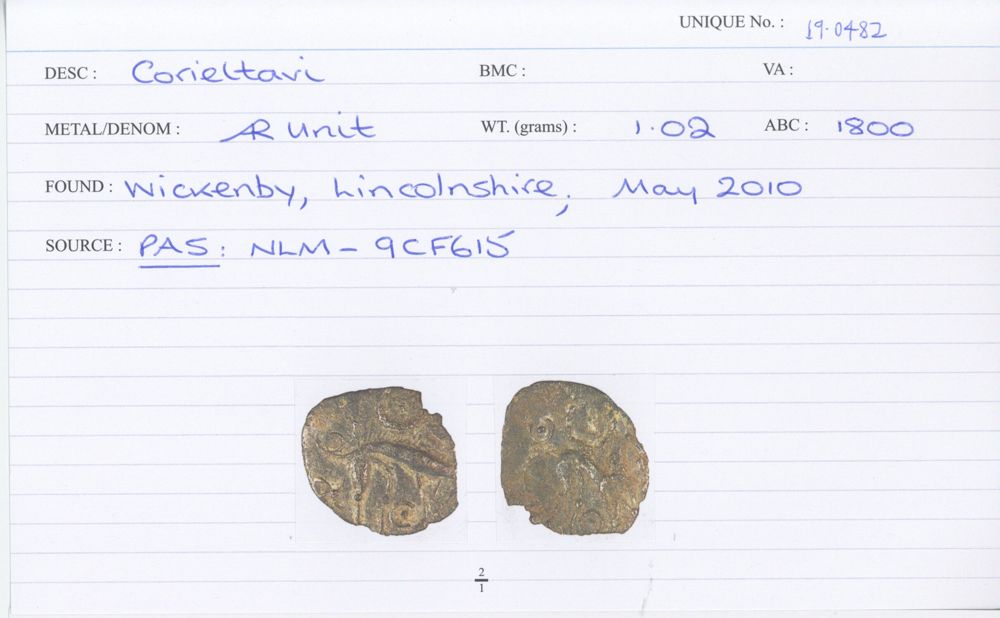 UNIQUE No. : 19.0482
DESC : Corieltavi BMC : VA :
METAL/DENOM : AR Unit WT. (grams) : 1.02 ABC : 1800
FOUND : Wickenby, Lincolnshire; May 2010
SOURCE : PAS: NLM - 9CF615
2
1